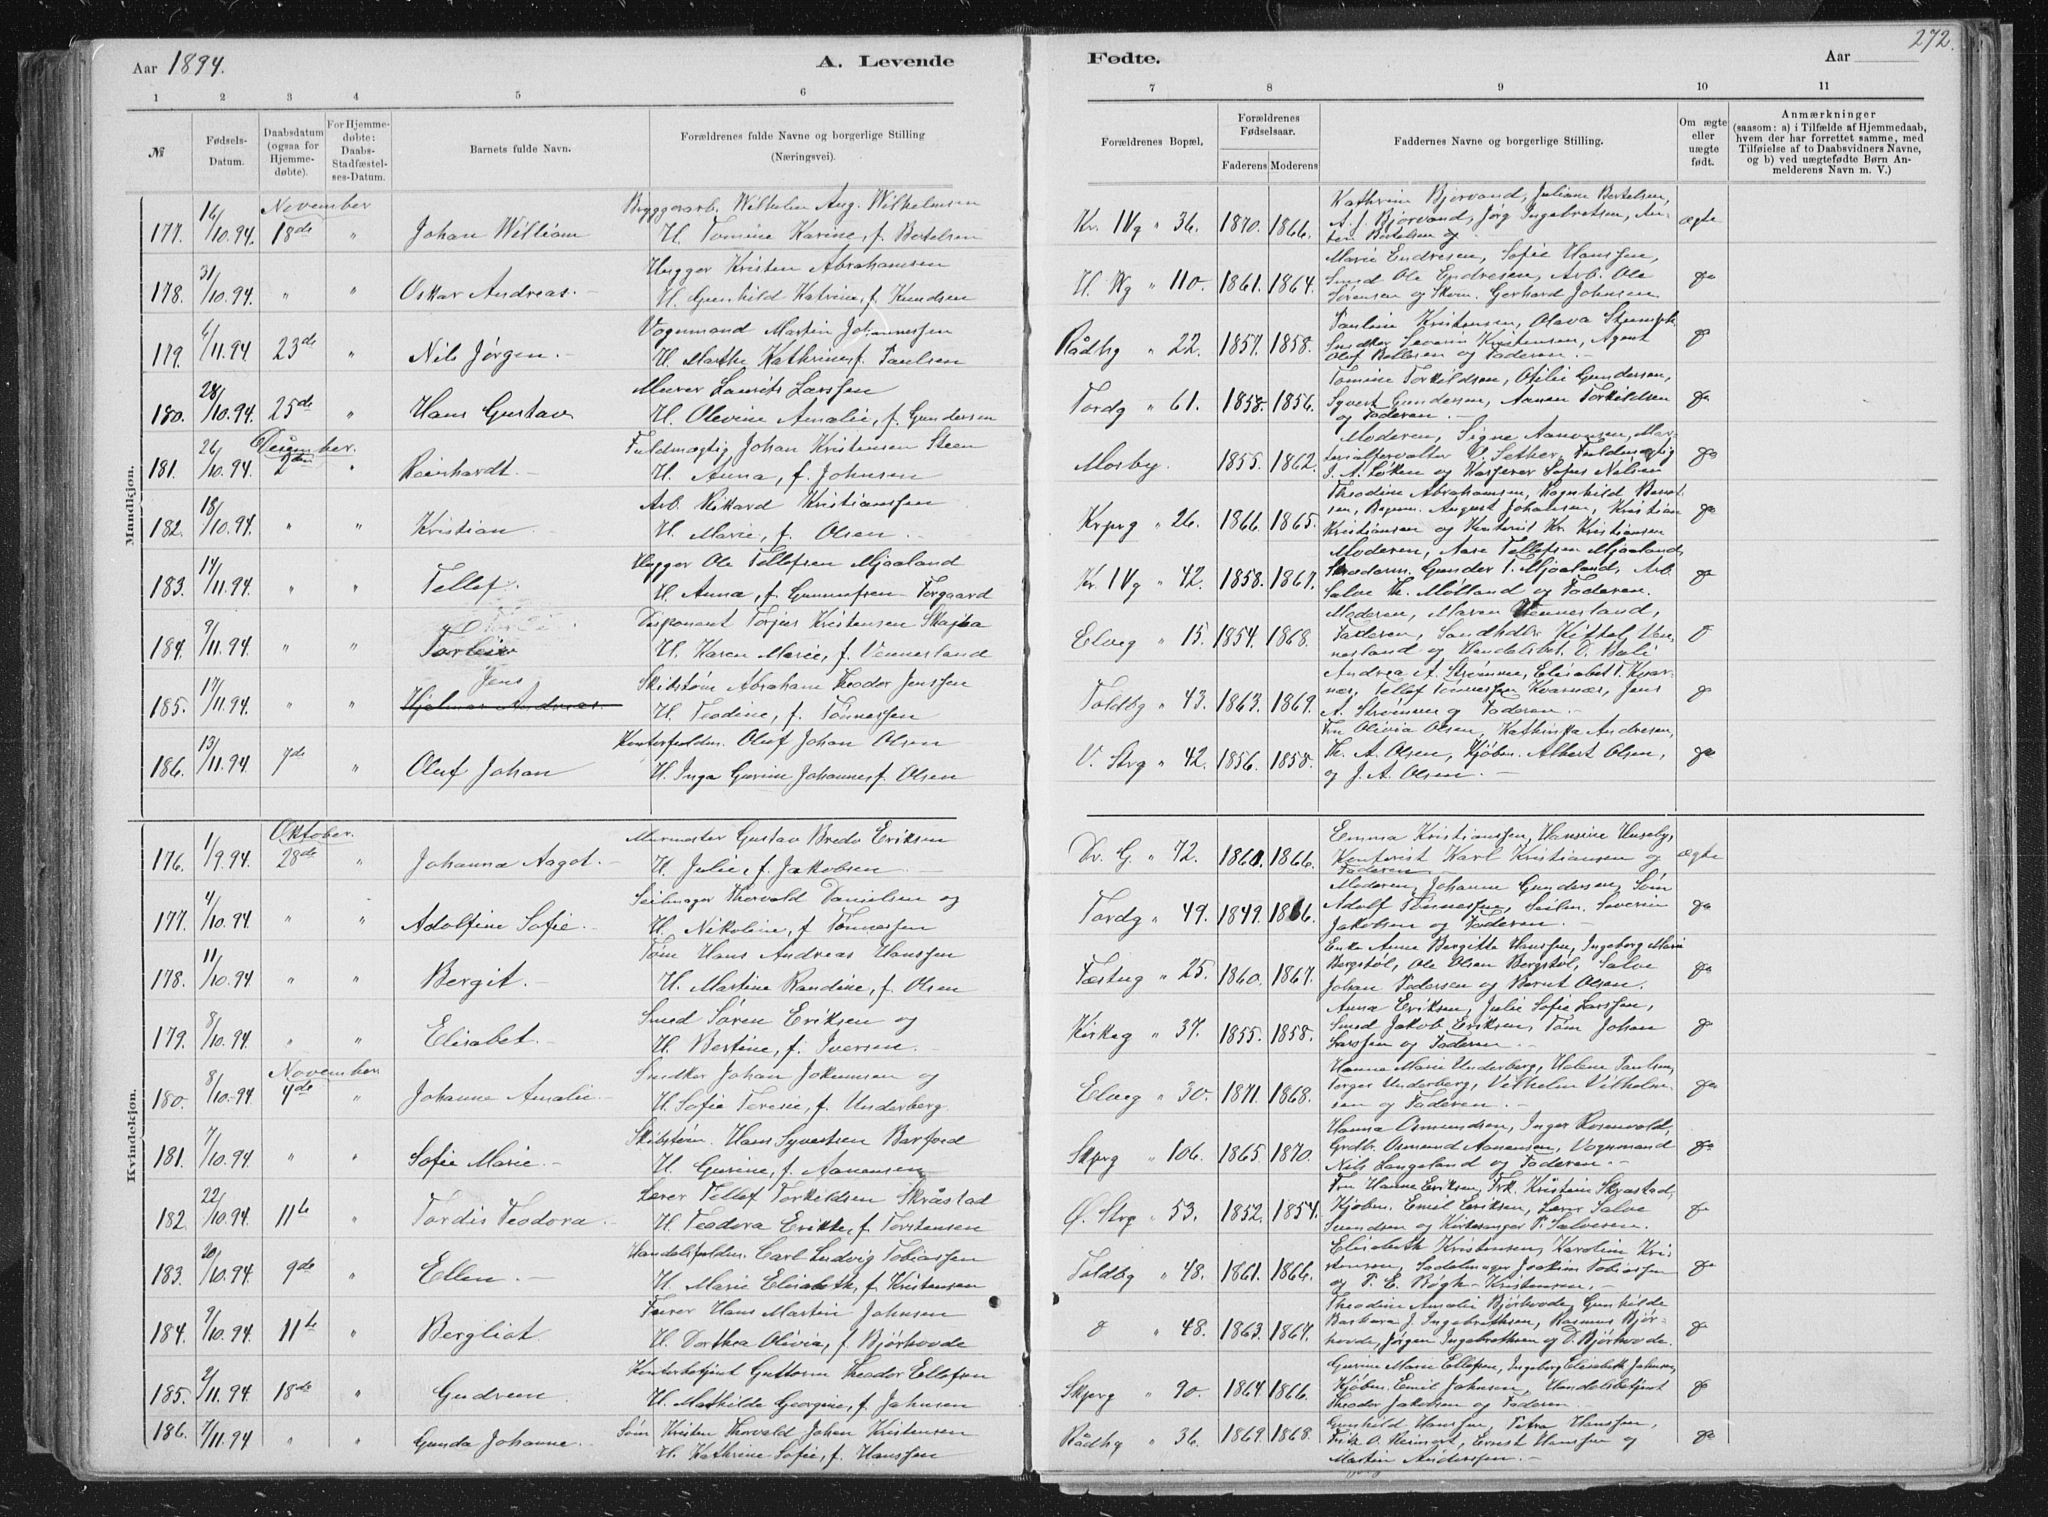 Aar 1894.
A. Levende
Fødte.
Aar
272.
1 2 3 4 5 6 7 8 9 10 11
№
Fødsels-Datum.
Daabsdatum (ogsaa for Hjemme-døbte).
For Hjemme-døbte: Daabs-Stadfæstel-ses-Datum.
Barnets fulde Navn.
Forældrenes fulde Navne og borgerlige Stilling (Næringsvei).
Forældrenes Bopæl.
Forældrenes Fødselsaar.
Faderens Moderens
Faddernes Navne og borgerlige Stilling.
Om ægte eller uægte født.
Anmærkninger
(saasom: a) i Tilfælde af Hjemmedaab, hvem der har forrettet samme, med Tilføielse af to Daabsvidners Navne, og b) ved uægtefødte Børn An-melderens Navn m. V.)
Mandkjøn.
November
177. 16/10.94. 18de " Johan William
Byggerarb. Wilhelm Aug. Wilhelmsen
H. Tomine Karine, f. Bertelsen
Kr. IVg " 36. 1870. 1866.
Kathrine Bjorvand, Juliane Bertelsen,
A. J. Bjorvand, Jørg Ingebretsen, An-
ton Bertelsen og
ægte
178. 31/10.94. " " Oskar Andreas.
Hugger Kristen Abrahamsen
H. Gunhild Katrine, f. Knudsen
H. Wg " 110. 1861. 1864.
Marie Endresen, Sofie Hanssen,
Smed Ole Endresen, Arb. Ole
Sørensen og Skom. Gerhard Johnsen
do
179. 6/11.94 23de " Nils Jørgen.
Vognmand Martin Johannessen
H. Marthe Kathrine, f. Paulsen
Rådhg " 22. 1857. 1858.
Pauline Kristensen, Olava
Snedker Severin Kristensen, Agent
Olof Bellesen og Faderen.
do
180. 28/10.94. 25de " Hans Gustav
Murer Laurits Larssen
H. Olevine Amalie, f. Gundersen
Tordg " 61. 1858. 1856.
Tomine Torkildsen, Otilie Gundersen,
Syvert Gundersen, Aanen Torkildsen
og Faderen.
do
December.
181. 26/10.94 2den " Reinhardt.
Fuldmægtig Johan Kristensen Steen
H. Anna, f. Johnsen
Mosby. 1855. 1862.
Moderen, Signe Aanonsen, Mat-
erialforvalter V. Sether, Fuldmægtig
J. A. Løken og Kasserer Sofus Nielsen
do
182. 18/10.94. " " Kristian
Arb. Rikard Kristianssen
H. Marie, f. Olsen
Krprg " 26. 1866. 1865.
Theodine Abrahamsen, Ragnhild Bernt-
sen, Bogen. August Johansen, Kristian
Kristiansen og Kontorist Kr. Kristiansen
do
183. 14/11.94. " " Tellef.
Hugger Ole Tellefsen Mjaaland
H. Anna, f. Gunnufsen Torgaard
Kr. IVg " 42. 1858. 1867.
Moderen, Aase Tellefsen Mjaaland,
Skrædderm. Gunder T. Mjaaland, Arb.
Salve Th. Mølland og Faderen.
do
184. 9/11.94. " " Torleiv
Disponent Torjus Kristensen Skajaa
H. Karen Marie, f. Vennesland
Elveg " 15. 1854. 1868.
Moderen, Maren Vennesland,
Faderen, Sandhdlr. Kittel Ven-
nesland og Handelsbet. D. Bali
do
185. 17/11.94. " " Jens
Hjelmar Andreas
Skibstøm Abraham Theodor Jenssen
H. Teodine, f. Tønnessen
Toldbg " 43. 1863. 1869.
Andrea A. Strømme, Elisabet T. Kvar-
nes, Tellef Tønnessen Kvarnæs, Jens
A. Strømme og Faderen.
do
186. 13/11.94. 7de " Oluf Johan
Kontorfuldm. Oluf Johan Olsen
H. Inga Gurine Johanne, f. Olsen
V. Strg " 42. 1856. 1858.
Fru Olivia Olsen, Kathinka Andresen,
Th. A. Olsen, Kjøbm. Albert Olsen,
og J. A. Olsen.
do
Kvindekjøn.
Oktober.
176. 1/9.94. 28de " Johanna Aagot.
Murmester Gustav Bredo Eriksen
H. Julie, f. Jakobsen
Dr. G. " 72. 1860. 1866.
Emma Kristianssen, Hansine Huseby,
Kontorist Karl Kristiansen og
Faderen
ægte
177. 4/10.94 " " Adolfine Sofie.
Seilmager Thorvald Danielsen og
H. Nikoline, f. Tønnessen
Tordg " 49. 1849. 1866.
Moderen, Johanne Gundersen, Søm
Adolf Tønnessen, Seilm. Severin
Jakobsen og Faderen.
do
178. 11/10.94 " " Bergit.
Tøm Hans Andreas Hanssen
H. Martine Randine, f. Olsen
Fæstng " 25. 1860. 1867.
Enke Anne Bergitte Hanssen, Ingeborg Marie
Bergstøl, Ole Olsen Bergstøl, Salve
Johan Pedersen og Bernt Olsen.
do
179. 8/10.94. " " Elisabet.
Smed Søren Eriksen og
H. Bertine, f. Iversen.
Kirkeg " 37. 1855. 1858.
Anna Eriksen, Julie Sofie Larssen,
Smed Jakob Eriksen, Tøm Johan
Larssen og Faderen.
do
November
180. 8/10.-94 4de " Johanne Amalie.
Snedker Johan Jokumsen og
H. Sofie Terese, f. Underberg
Elveg " 30. 1871. 1868.
Hanna Marie Underberg, Helene Paulsen,
Torger Underberg, Vilhelm Vilhelm-
sen og Faderen.
do
181. 7/10.94 " " Sofie Marie.
Skibstøm. Hans Syvertsen Barford
H. Gurine, f. Aanensen
Skprg " 106. 1865. 1870.
Hanna Osmundsen, Inger Rosenvold,
Grdbr. Osmund Aanensen, Vognmand
Nils Langeland og Faderen.
do
182. 22/10.94. 11te " Tordis Teodora.
Lærer Tellef Torkildsen Skråstad
H. Teodora Erikke, f. Torstensen
Ø. Strg " 53. 1852. 1854.
Fru Hanne Eriksen, Frk. Kristine Skråstad,
Kjøbm. Emil Eriksen, Lærer Salve
Svendsen og Kirkesanger P. Salvesen.
do
183. 20/10.94 9de " Ellen.
Handelsfuldm. Carl Ludvig Tobiassen
H. Marie Elisabeth, f. Kristensen
Toldbg " 48. 1861. 1866.
Elisabeth Kristensen, Karoline Kri-
stensen, Sadelmager Joakim Tobiassen
og P. E. Røgh-Kristensen.
do
184. 9/10.94. 11te " Bergliot.
Fører Hans Martin Johnsen
H. Dorthea Olivia, f. Bjørhovde
do " 48. 1863. 1867.
Theodine Amalie Bjørhovde, Gunhilde
Barbara J. Ingebrethsen, Rasmus Bjør-
hovde, Jørgen Ingebrethsen og D. Bjørhovde.
do
185. 2/11.94 18de " Gudrun
Kontorbetjent Guttorm Theodor Ellefsen
H. Mathilde Georgine, f. Johnsen
Skprg " 90. 1864. 1866.
Gurine Marie Ellefsen, Ingeborg Elisabeth Johnsen,
Kjøbm. Emil Johnsen, Handelsbetjent
Theodor Jakobsen og Faderen.
do
186. 7/11.94 " " Gunda Johanne.
Søm Kristen Thorvald Johan Kristensen
H. Kathrine Sofie, f. Hanssen
Rådhg " 36. 1869. 1868.
Gunhild Hanssen, Petra Hanssen,
Fritz O. Reimert, Ernst Hanssen og
Martin Anderssen.
do